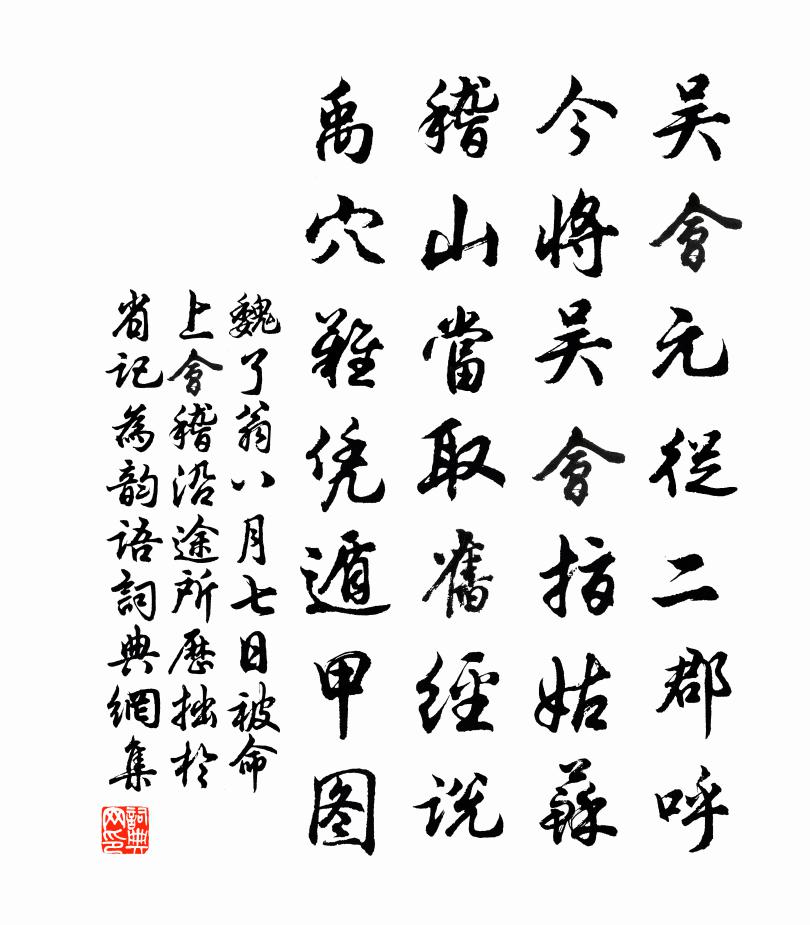 吴會元從二郡呼
今將吴會指姑蘇
稽山當取舊經説
禹穴難凭遁甲图
魏了翁八月七日被命
上會稽沿途所歷拙於
省記為韵语詞典網集
詞典网印